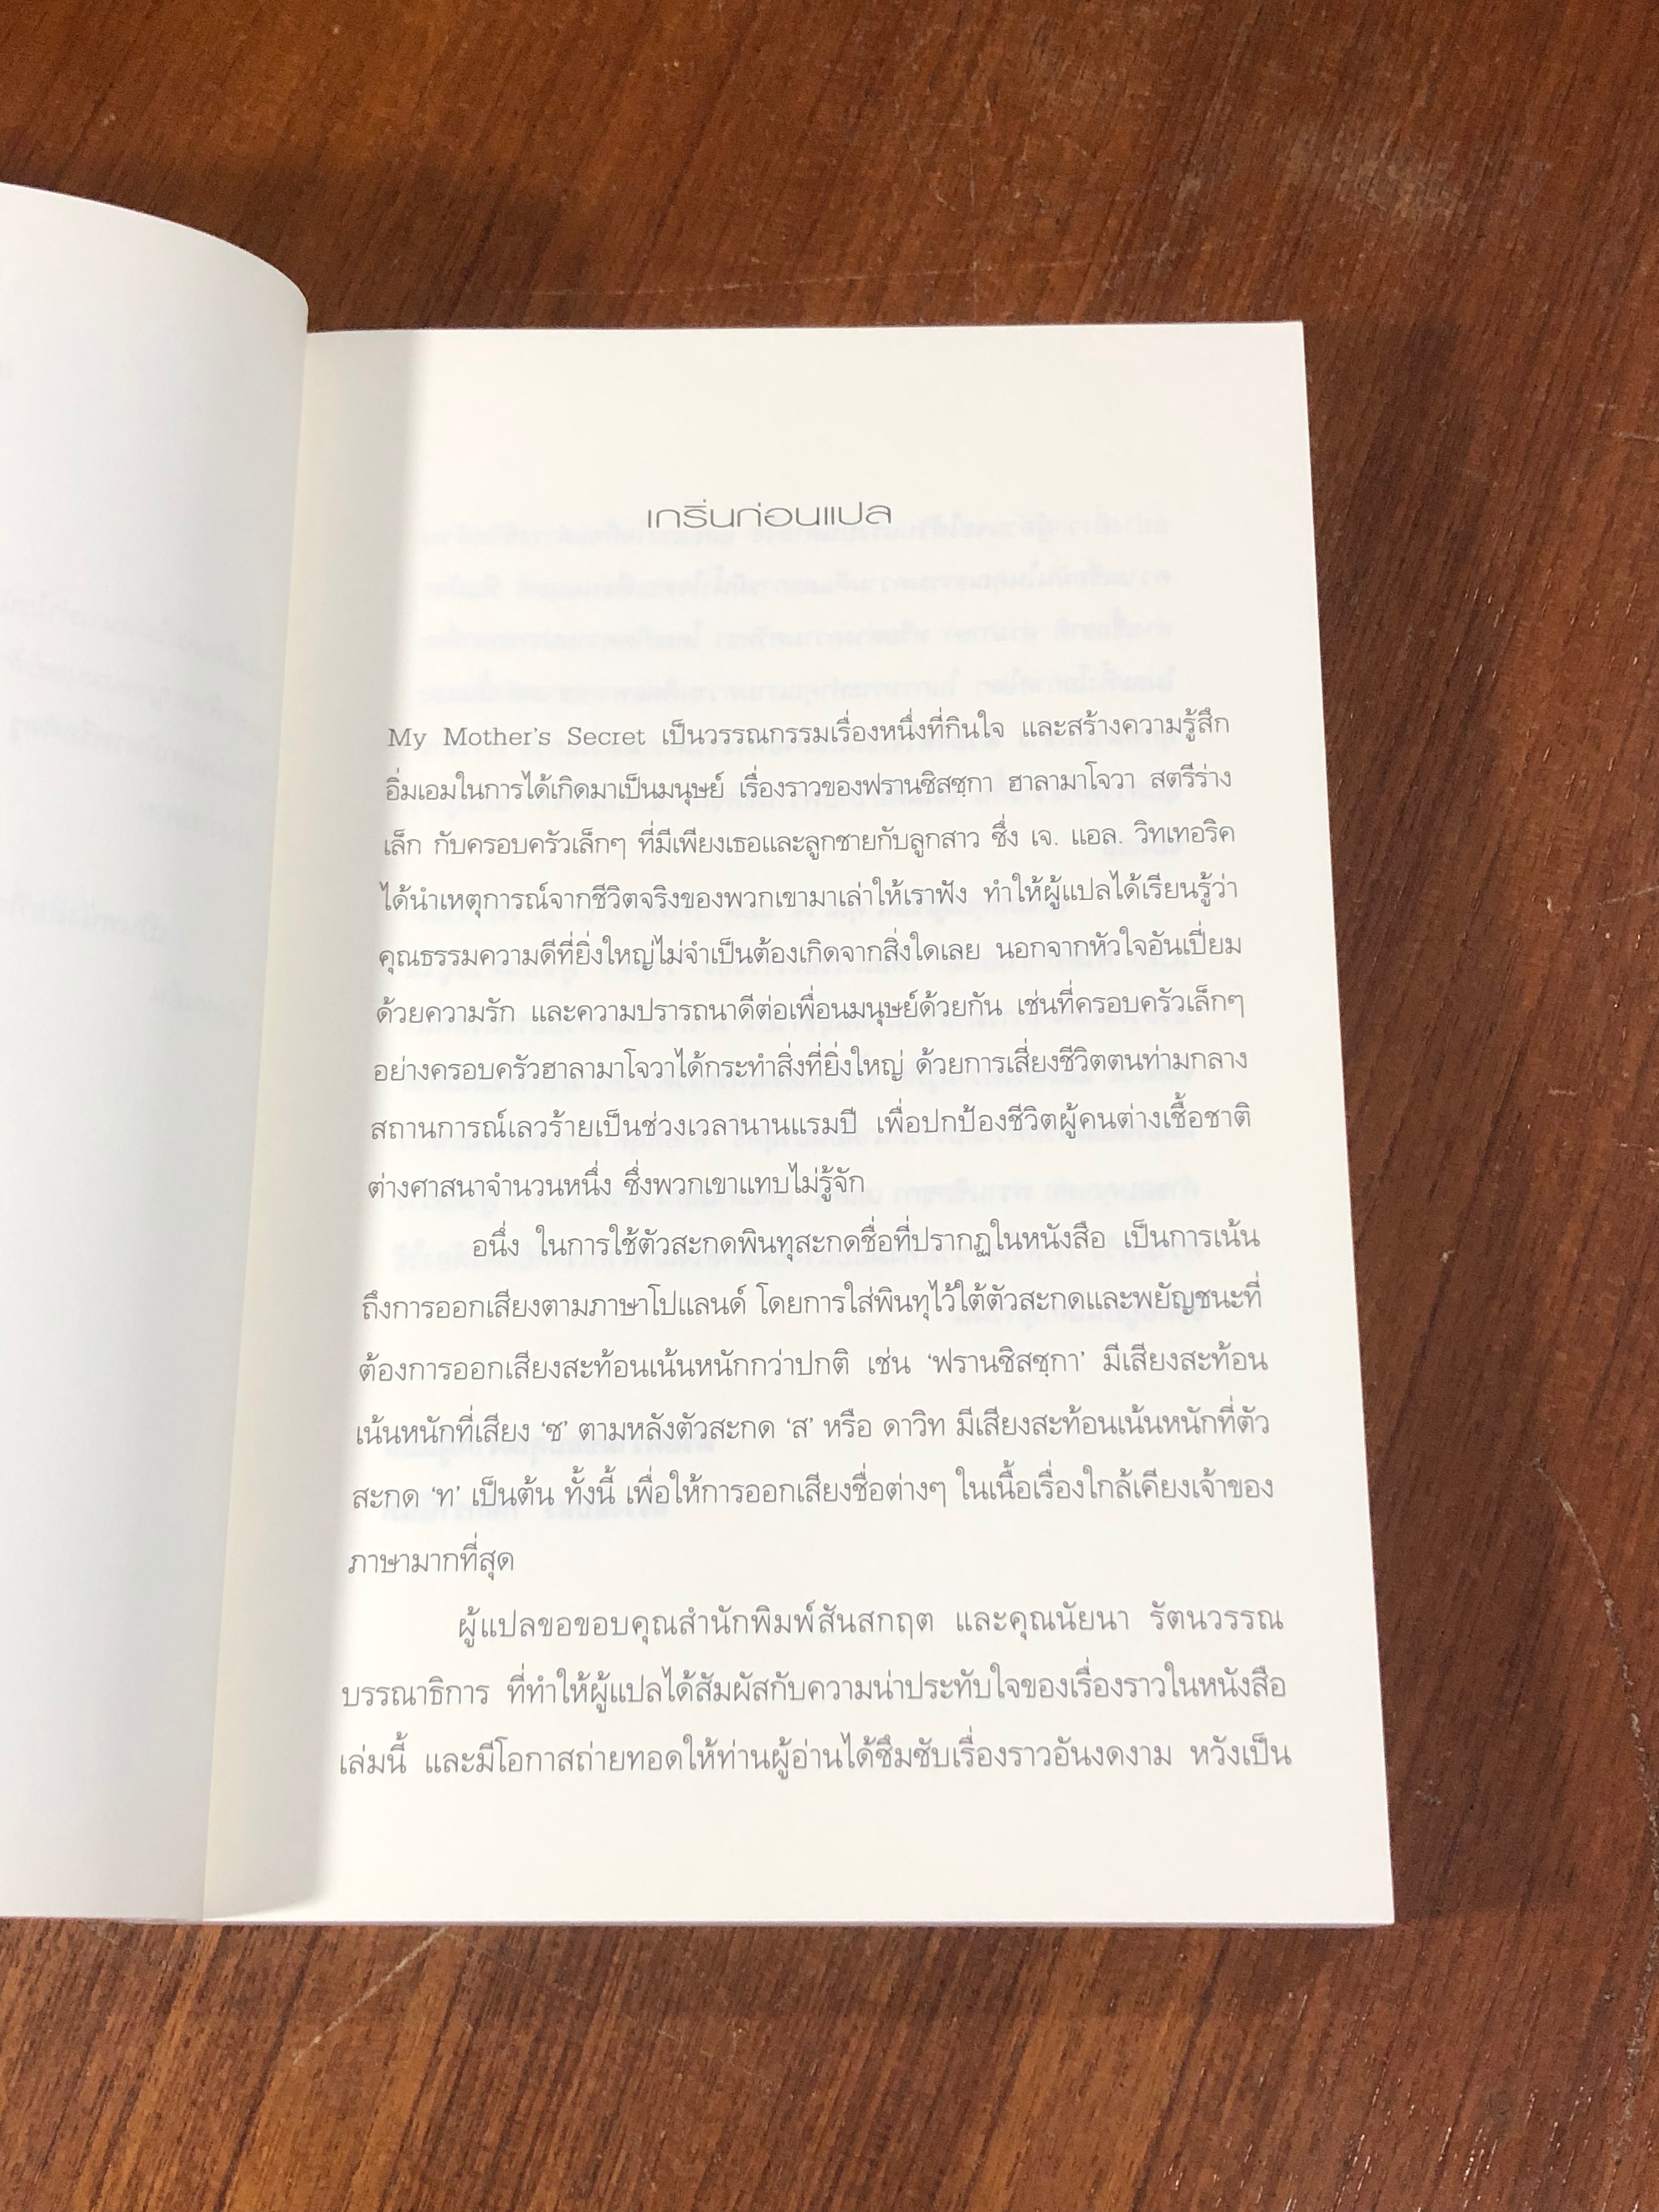 เกริ่นก่อนแปล
My Mother's Secret เป็นวรรณกรรมเรื่องหนึ่งที่กินใจ และสร้างความรู้สึก
อิ่มเอมในการได้เกิดมาเป็นมนุษย์ เรื่องราวของฟรานซิสซฺกา ฮาลามาโจวา สตรีร่าง
เล็ก กับครอบครัวเล็กๆ ที่มีเพียงเธอและลูกชายกับลูกสาว ซึ่ง เจ. แอล. วิทเทอริค
ได้นำเหตุการณ์จากชีวิตจริงของพวกเขามาเล่าให้เราฟัง ทำให้ผู้แปลได้เรียนรู้ว่า
คุณธรรมความดีที่ยิ่งใหญ่ไม่จำเป็นต้องเกิดจากสิ่งใดเลย นอกจากหัวใจอันเปี่ยม
ด้วยความรัก และความปรารถนาดีต่อเพื่อนมนุษย์ด้วยกัน เช่นที่ครอบครัวเล็กๆ
อย่างครอบครัวฮาลามาโจวาได้กระทำสิ่งที่ยิ่งใหญ่ ด้วยการเสี่ยงชีวิตตนท่ามกลาง
สถานการณ์เลวร้ายเป็นช่วงเวลานานแรมปี เพื่อปกป้องชีวิตผู้คนต่างเชื้อชาติ
ต่างศาสนาจำนวนหนึ่ง ซึ่งพวกเขาแทบไม่รู้จัก
อนึ่ง ในการใช้ตัวสะกดพินทุสะกดชื่อที่ปรากฏในหนังสือ เป็นการเน้น
ถึงการออกเสียงตามภาษาโปแลนด์ โดยการใส่พินทุไว้ใต้ตัวสะกดและพยัญชนะที่
ต้องการออกเสียงสะท้อนเน้นหนักกว่าปกติ เช่น ‘ฟรานซิสซฺกา’ มีเสียงสะท้อน
เน้นหนักที่เสียง ‘ซ’ ตามหลังตัวสะกด ‘ส’ หรือ ดาวิท มีเสียงสะท้อนเน้นหนักที่ตัว
สะกด ‘ท’ เป็นต้น ทั้งนี้ เพื่อให้การออกเสียงชื่อต่างๆ ในเนื้อเรื่องใกล้เคียงเจ้าของ
ภาษามากที่สุด
ผู้แปลขอขอบคุณสำนักพิมพ์สันสกฤต และคุณนัยนา รัตนวรรณ
บรรณาธิการ ที่ทำให้ผู้แปลได้สัมผัสกับความน่าประทับใจของเรื่องราวในหนังสือ
เล่มนี้ และมีโอกาสถ่ายทอดให้ท่านผู้อ่านได้ซึมซับเรื่องราวอันงดงาม หวังเป็น